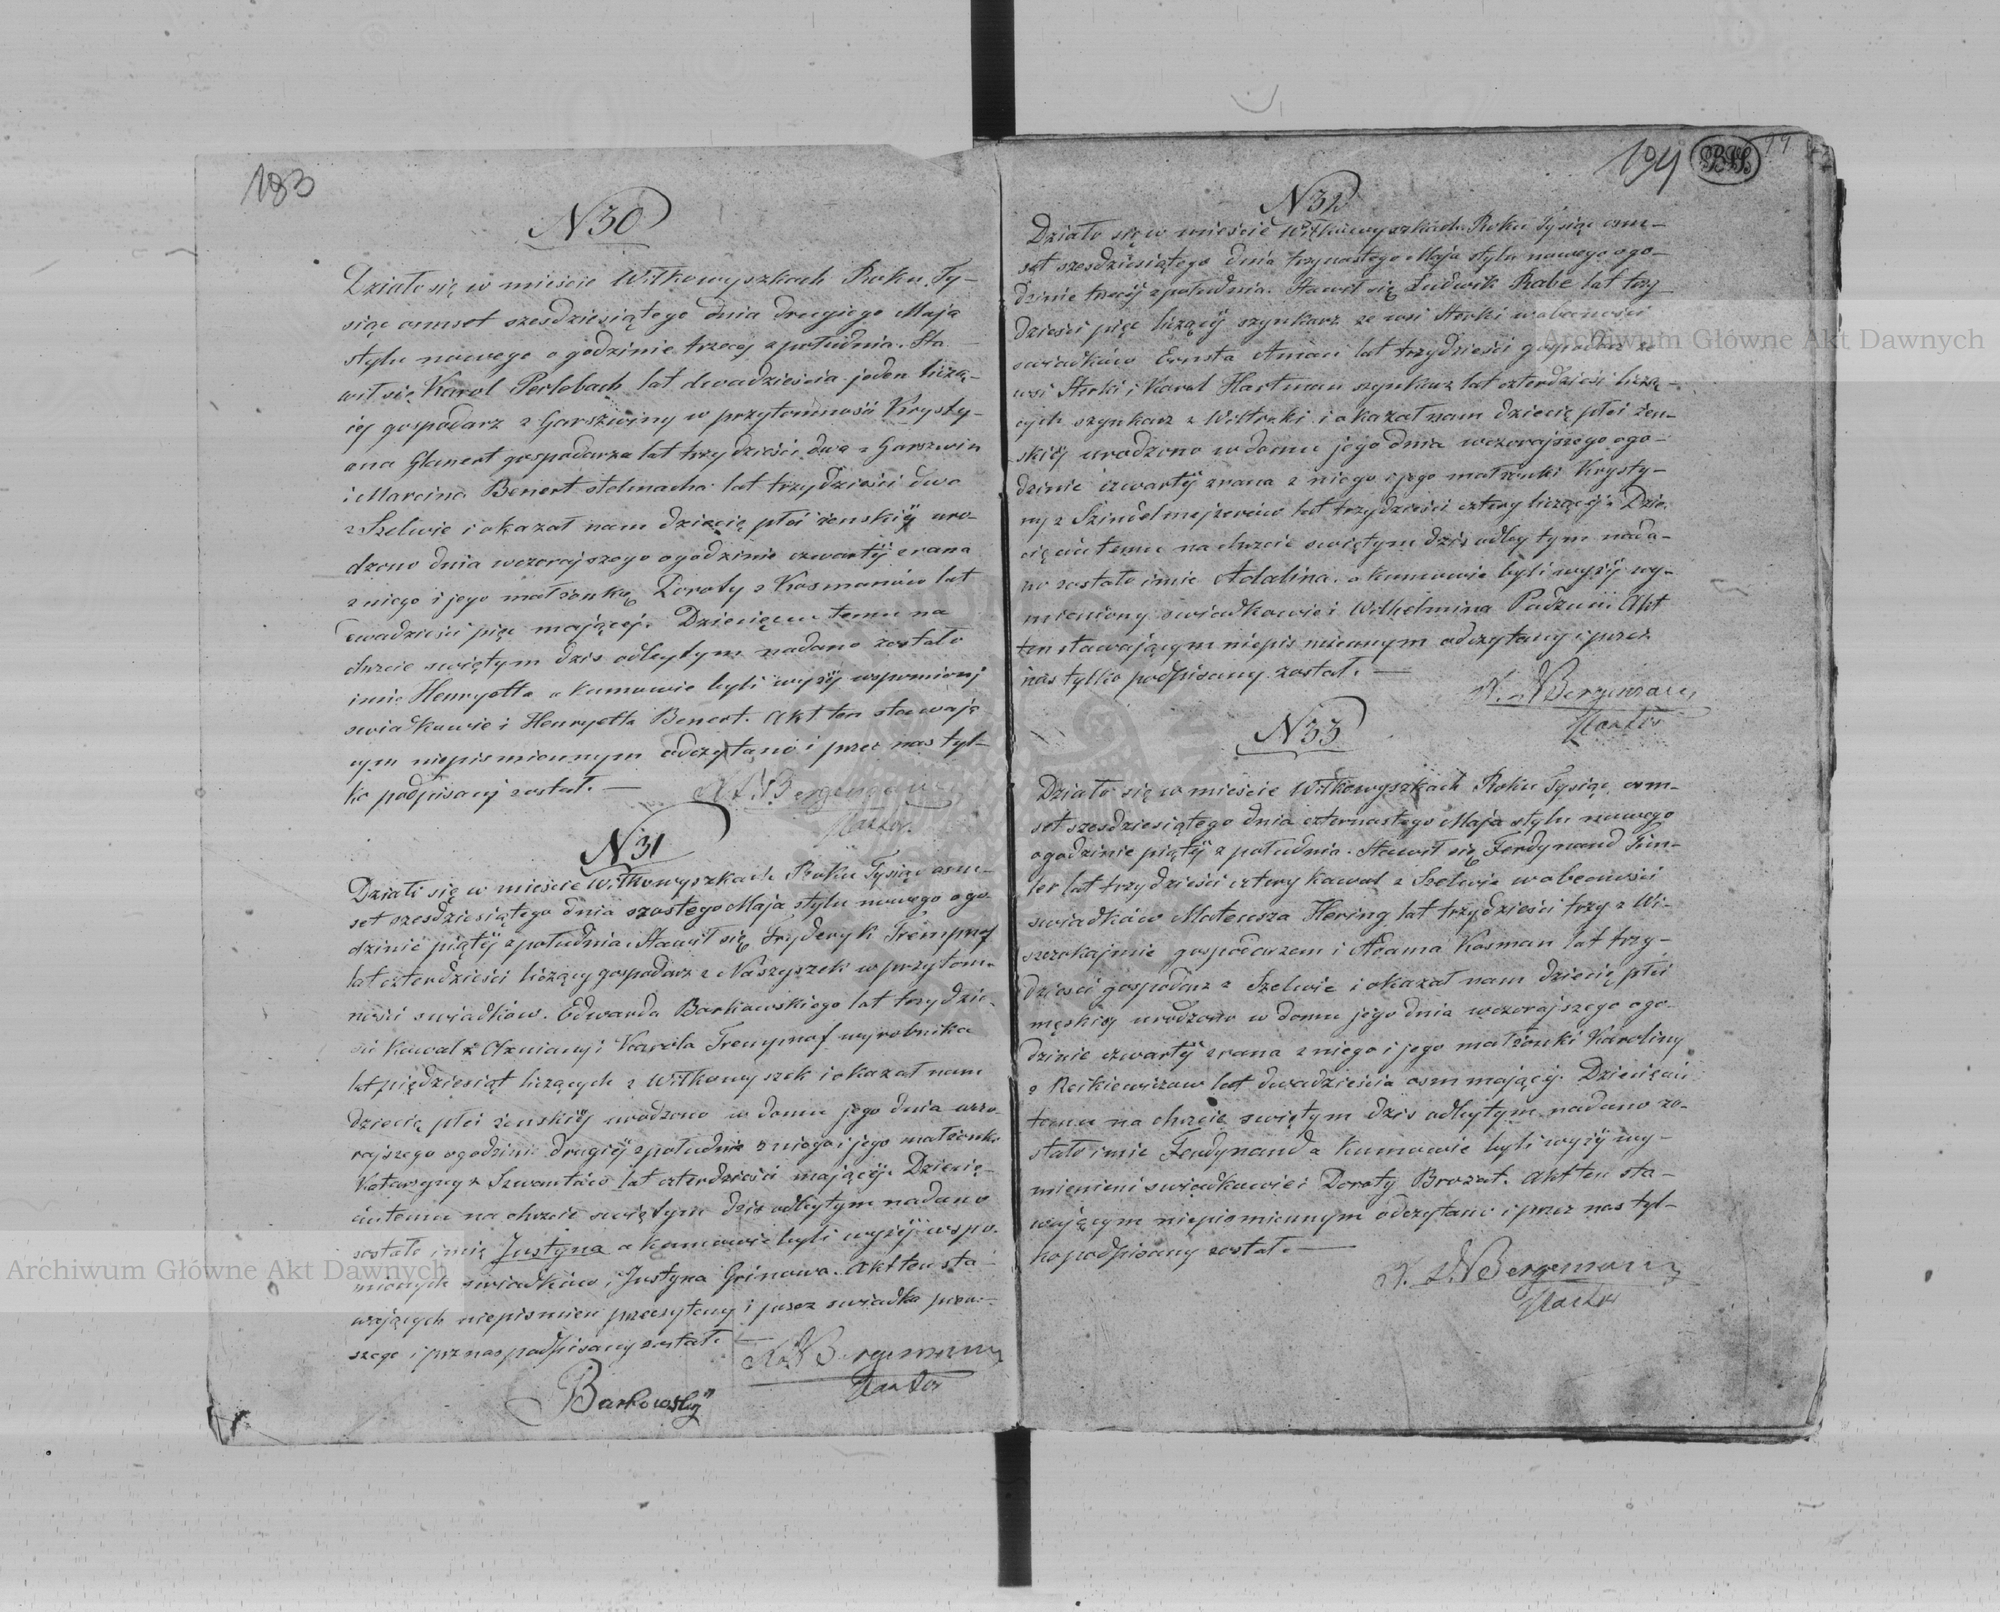 193
N 30
Działo się w mieście Wiłkowyszkach Roku Ty-
siąc ośmset sześdziesiątego dnia drugiego Maja
stylu nowego o godzinie trzeciej z południa. Sta
wił się Karol Perlebach lat dwadzieścia jeden liczą-
cy gospodarz z Garszwiny w przytomności Krysty-
ana Glenert gospodarza lat trzydzieści dwa z Garszwin
i Marcina Benert stelmacha lat trzydzieści dwa
z Szelwie i okazał nam dziecię płci żenskiéj uro-
dzono dnia wczorajszego o godzinie czwartéj zrana
z niego i jego małżonkę Doroty z Kosmanów lat
dwadzieści pięc mającej. Dziecięciu temu na
chrzcie świętym dzis odbytym nadano zostało
imie Henryetta a kumowie byli wyżéj wspomionj
swiadkowie i Henryetta Benert. Akt ten stawają
cym niepismiennym odczytano i przez nas tyl-
ko podpisanj został. —
Bergemann
Pastor
N 31
Działi się w mieście Wiłkowyszkach Roku Tysiąc osm-
set szesdziesiątego dnia szostego Maja stylu nowego o go-
dzinie piątéj z południa. Stawił się Fryderyk Trempnaf
lat czterdzieści liczący gospodarz z Naszyszek w przytom-
ności swiadków. Edwarda Barkowskiego lat trzydzie-
ści kowal z Ożniany i Karola Trempnaf wyrobnika
lat pięćdziesiąt liczących z Wiłkowyszek i okazał nam
dziecię płci żenskiéj urodzono w domu jego dnia wczo-
rajszego o godzinie drugiéj z południa z niego i jego małżonki
Katarzyny z Szwantów lat czterdzieści mającéj. Dziecię-
ciu temu na chrzcie świętym dzis odbytym nadano
zostało imię Justyna a kumowie byli wyżéj wspo-
mionych swiadków i Justyna Grinowa. Akt ten sta-
wających niepismien przeczytany i przez swiadka pierw-
szego i prznas podpisany został. —
Bergemann
Pastor
Barkowskij
194
N 32
Działo się w mieście Wiłkowyszkach Roku Tysiąc osm-
set szesdziesiątego dnia trzynastego Maja stylu nowego o go-
dzinie trzeciéj z południa. Stawił się Ludwik Rabe lat trzy
dzieści pięc liczącéj szynkarz ze wsi Sterki w obecności
swiadków Ernsta Amari lat trzydzieści gospodarz ze
wsi Sterki i Karol Hartman szynkarz lat czterdzieści liczą-
cych szynkarz z Wistreki i okazał nam dziecię płci żen-
skiéj urodzono w domu jego dnia wczorajszego o go-
dzinie czwartéj zrana z niego i jego małżonki Krysty-
ny z Szindelmejzerów lat trzydzieści cztery liczącéj. Dzie-
cięciu temu na chrzcie swiętym dzis odbytym nada-
no zostało imie Adalina. a kumowie byli wyżéj wy-
mieniony swiadkowie i Wilhelmina Akt
ten stawającym niepismiennym odczytany i przez
nas tylko podpisany został. —
Bergemann
Pastor
N 33
Działo się w mieście Wiłkowyszkach Roku Tysiąc osm-
set szesdziesiątego dnia czternastego Maja stylu nowego
o godzinie piątéj z południa. Stawił się Ferdynand Tün-
ler lat trzydzieści cztery kowal z Szelwie w obecności
swiadków Mateusza Hering lat trzydzieści trzy z Wi-
szczokajmie gospodarzem i Adama Kosman lat trzy-
dzieści gospodarz z Szelwie i okazał nam dziecię płci
męskiéj urodzono w domu jego dnia wczorajszego o go-
dzinie czwartéj zrana z niego i jego małżonki Karoliny
z Reikiewiczow lat dwadzieścia osm mającéj. Dziecięciu
temu na chrzcie swiętym dzis odbytym nadano zo-
stało imie Ferdynand a kumowie byli wyżéj wy-
mienieni swiadkowie i Doroty Brozat. Akt ten sta-
wającym niepismiennym odczytano i przez nas tyl-
ko podpisany został. —
Bergemann
Pastor
Archiwum Główne Akt Dawnych
Archiwum Główne Akt Dawnych